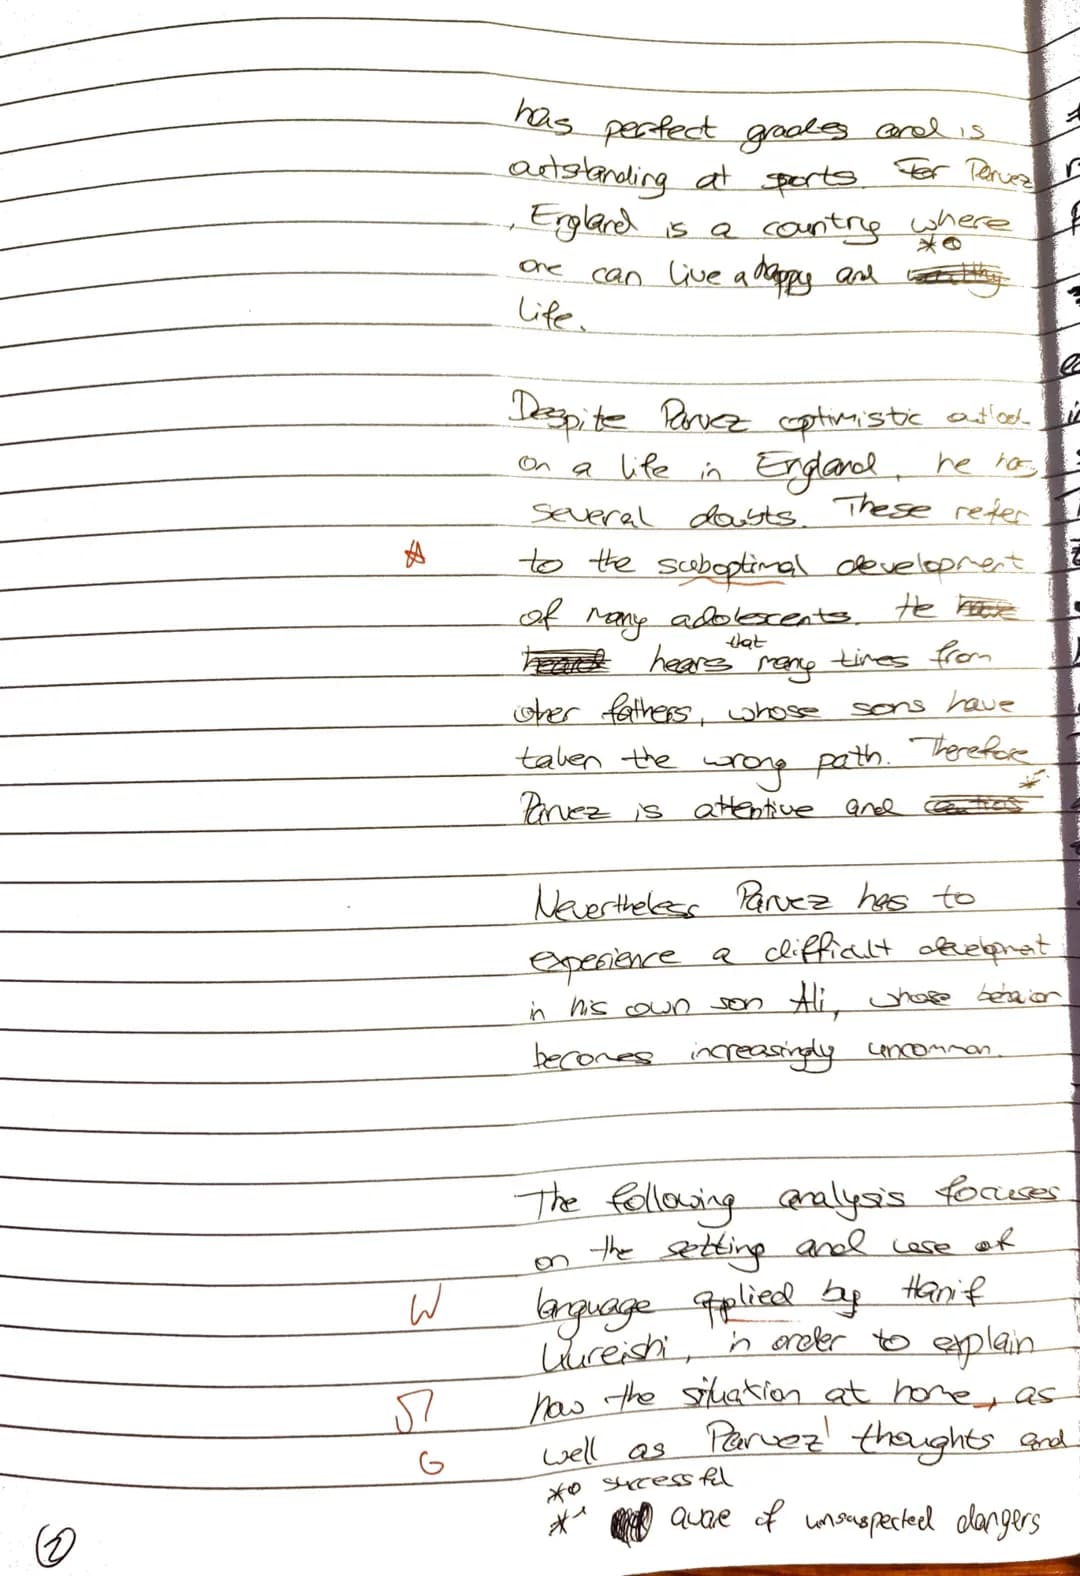 has perfect grades and is
outstanding at sports. For Parvez
, England is a country where
*⊙
one can live a happy and wealthy
life.
Despite Parvez optimistic outlook
on a life in England, he has
several doubts. These refer
A to the suboptimal development
of many adolescents. He have
that
heard hears many times from
other fathers, whose sons have
taken the wrong path. Therefore
Parvez is attentive and cautios *'
Nevertheless Parvez has to
experience a difficult development
in his own son Ali, whose behaior
becomes increasingly uncommon.
The following analysis focuses
on the setting and use of
W language applied by Hanif
Kureishi, in order to explain
SZ how the situation at home, as
G well as Parvez' thoughts and
*⊙ successful
*' aware of unsuspected dangers
②